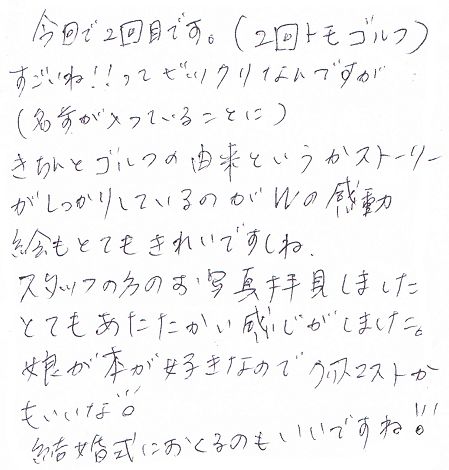 今回で2回目です。(2回トモゴルフ)
すごいね!!ってビックリなんですが
(名前が入っていることに)
きちんとゴルフの由来というかストーリー
がしっかりしているのがWの感動
絵もとてもきれいですしね.
スタッフの方のお写真拝見しました
とてもあたたかい感じがしました。
娘が本が好きなのでクリスマスストか
もいいな!!
結婚式におくるのもいいですね!!!